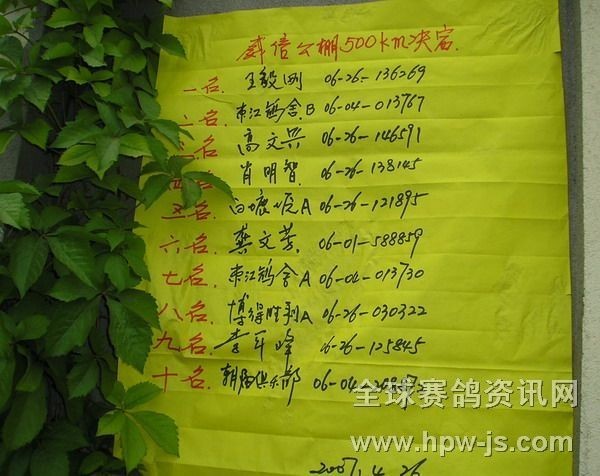 威信公棚500km决赛.
一名. 王毅刚 06-26-136269
二名. 東江鸽舍B 06-04-013767
三名 高文兴 06-26-146591
四名 肖明智. 06-26-138145
五名. A 06-26-121895
六名. 龚文芳. 06-01-588859
七名. 東江鸽舍A 06-04-013730
八名. 博得胜利A 06-26-030322
九名. 李军峰 06-26-125845
十名. 朝阳俱乐部 06-04-
全球赛鸽资讯网
www.hpw-js.com
2007.4.26